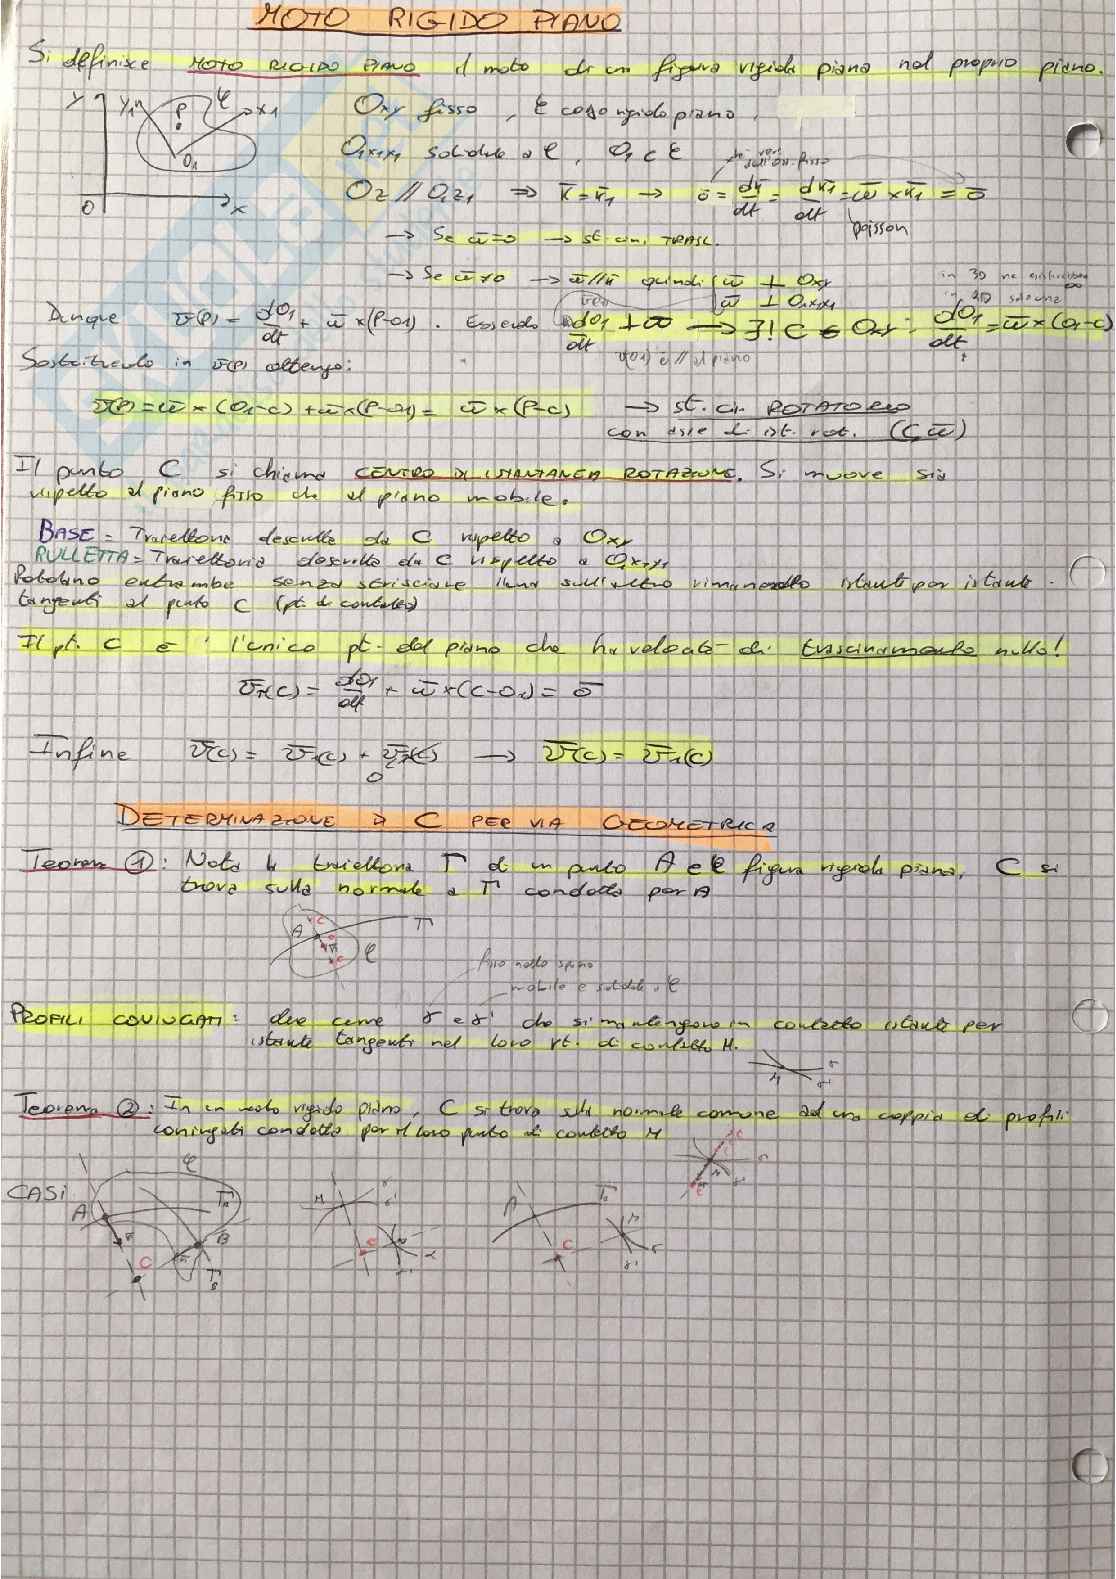 MOTO RIGIDO PIANO
Si definisce MOTO RIGIDO PIANO il moto di un figura rigida piana nel proprio piano.
y y1 P φ x1 O1 O x
Oxy fisso, φ corpo rigido piano,
O1x1y1 solidale a φ, O1 ∈ φ
Oz // O1z1 ⇒ k̄ = k̄1 → ō = dk̄/dt = dk̄1/dt = ω̄ × k̄1 = ō
poisson
→ Se ω̄=0 → st. cin. TRASL.
→ Se ω̄≠0 → ω̄//k̄ quindi { ω̄ ⊥ Oxy
ω̄ ⊥ O1x1y1
in 3D ne
∞
in 2D
Dunque v̄(P) = dO1/dt + ω̄ × (P-O1). Essendo dO1/dt ⊥ ω̄ → ∃! C ∈ Oxy : dO1/dt = ω̄ × (O1-C)
v(O1) è // al piano
Sostituendo in v̄(P) ottengo:
v̄(P) = ω̄ × (O1-C) + ω̄ × (P-O1) = ω̄ × (P-C) → st. cin. ROTATORIO
con asse di ist. rot. (C, ω̄)
Il punto C si chiama CENTRO DI ISTANTANEA ROTAZIONE. Si muove sia
rispetto al piano fisso che al piano mobile.
BASE = Traiettoria descritta da C rispetto a Oxy
RULLETTA = Traiettoria descritta da C rispetto a O1x1y1
Rotolano entrambe senza strisciare l'una sull'altro rimanendo istante per istante
tangenti al punto C (pt. di contatto)
Il pt. C è l'unico pt. del piano che ha velocità di trascinamento nulla!
v̄τ(C) = dO1/dt + ω̄ × (C-O1) = ō
Infine v̄(C) = v̄r(C) + v̄τ(C) → v̄(C) = v̄r(C)
0
DETERMINAZIONE DI C PER VIA GEOMETRICA
Teorema ①: Nota la traiettoria Γ di un punto A ∈ φ figura rigida piana, C si
trova sulla normale a Γ condotta per A
C A Γ C φ
fisso nello spazio
mobile e solidale a φ
PROFILI CONIUGATI: due curve γ e γ' che si mantengono in contatto istante per
istante tangenti nel loro pt. di contatto M.
M γ γ'
Teorema ②: In un moto rigido piano, C si trova sulla normale comune ad una coppia di profili
coniugati condotta per il loro punto di contatto M
C M γ γ' C
CASI
φ A ΓA B C ΓB
M γ γ' C
A Γ C M γ γ'